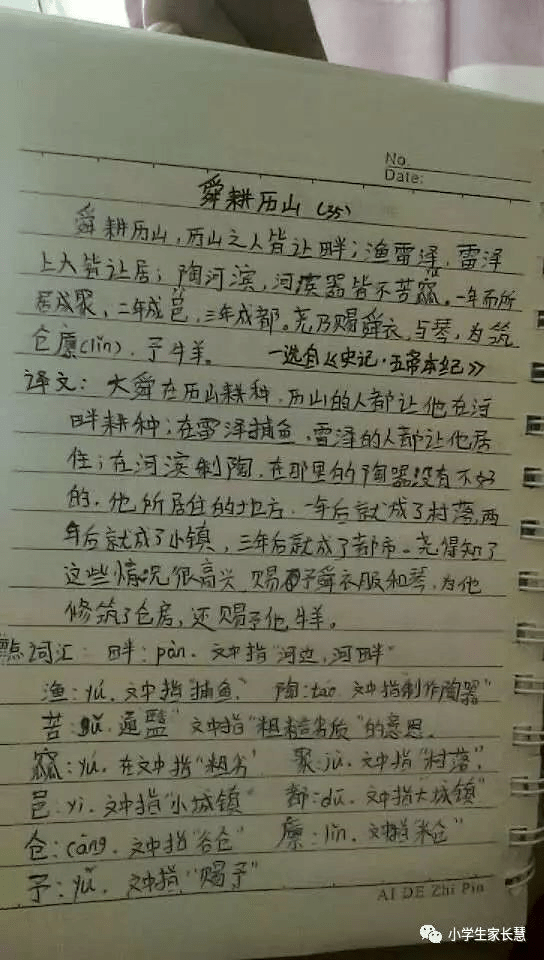 No.
Date:
舜耕历山 (35)
舜耕历山，历山之人皆让畔；渔雷泽，雷泽
上人皆让居；陶河滨，河滨器皆不苦窳。一年而所
居成聚，二年成邑，三年成都。尧乃赐舜衣，与琴，为筑
仓廪(lǐn)，予牛羊。 —选自《史记·五帝本纪》
译文：大舜在历山耕种，历山的人都让他在河
畔耕种；在雷泽捕鱼，雷泽的人都让他居
住；在河滨制陶，在那里的陶器没有不好
的。他所居住的地方，一年后就成了村落，两
年后就成了小镇，三年后就成了都市。尧得知了
这些情况很高兴，赐予舜衣服和琴，为他
修筑了仓房，还赐予他牛羊。
点词汇：畔：pàn，文中指“河边，河畔”
渔：yú，文中指“捕鱼” 陶：táo 文中指制作陶器”
苦：gǔ，通盬” 文中指“粗糙劣质”的意思。
窳：yǔ，在文中指“粗劣” 聚：jù，文中指“村落”，
邑：yì，文中指“小城镇” 都：dū，文中指“大城镇”
仓：cāng，文中指“谷仓” 廪：lǐn，文中指“米仓”
予：yǔ，文中指“赐予”
AI DE Zhi Pin
小学生家长慧